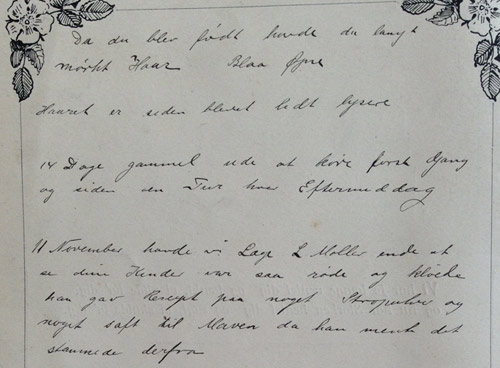 Da du blev født havde du langt
mørkt Haar Blaa Øjne
Haaret er siden blevet lidt lysere
14 Dage gammel ude at køre først Gang
og siden en Tur hver Eftermiddag
11 November havde vi Læge L Møller ende at
se dine Hænder var saa røde og kløede
han gav Recept paa noget Strøpulver og
noget saft til Maven da han mente det
stammede derfra